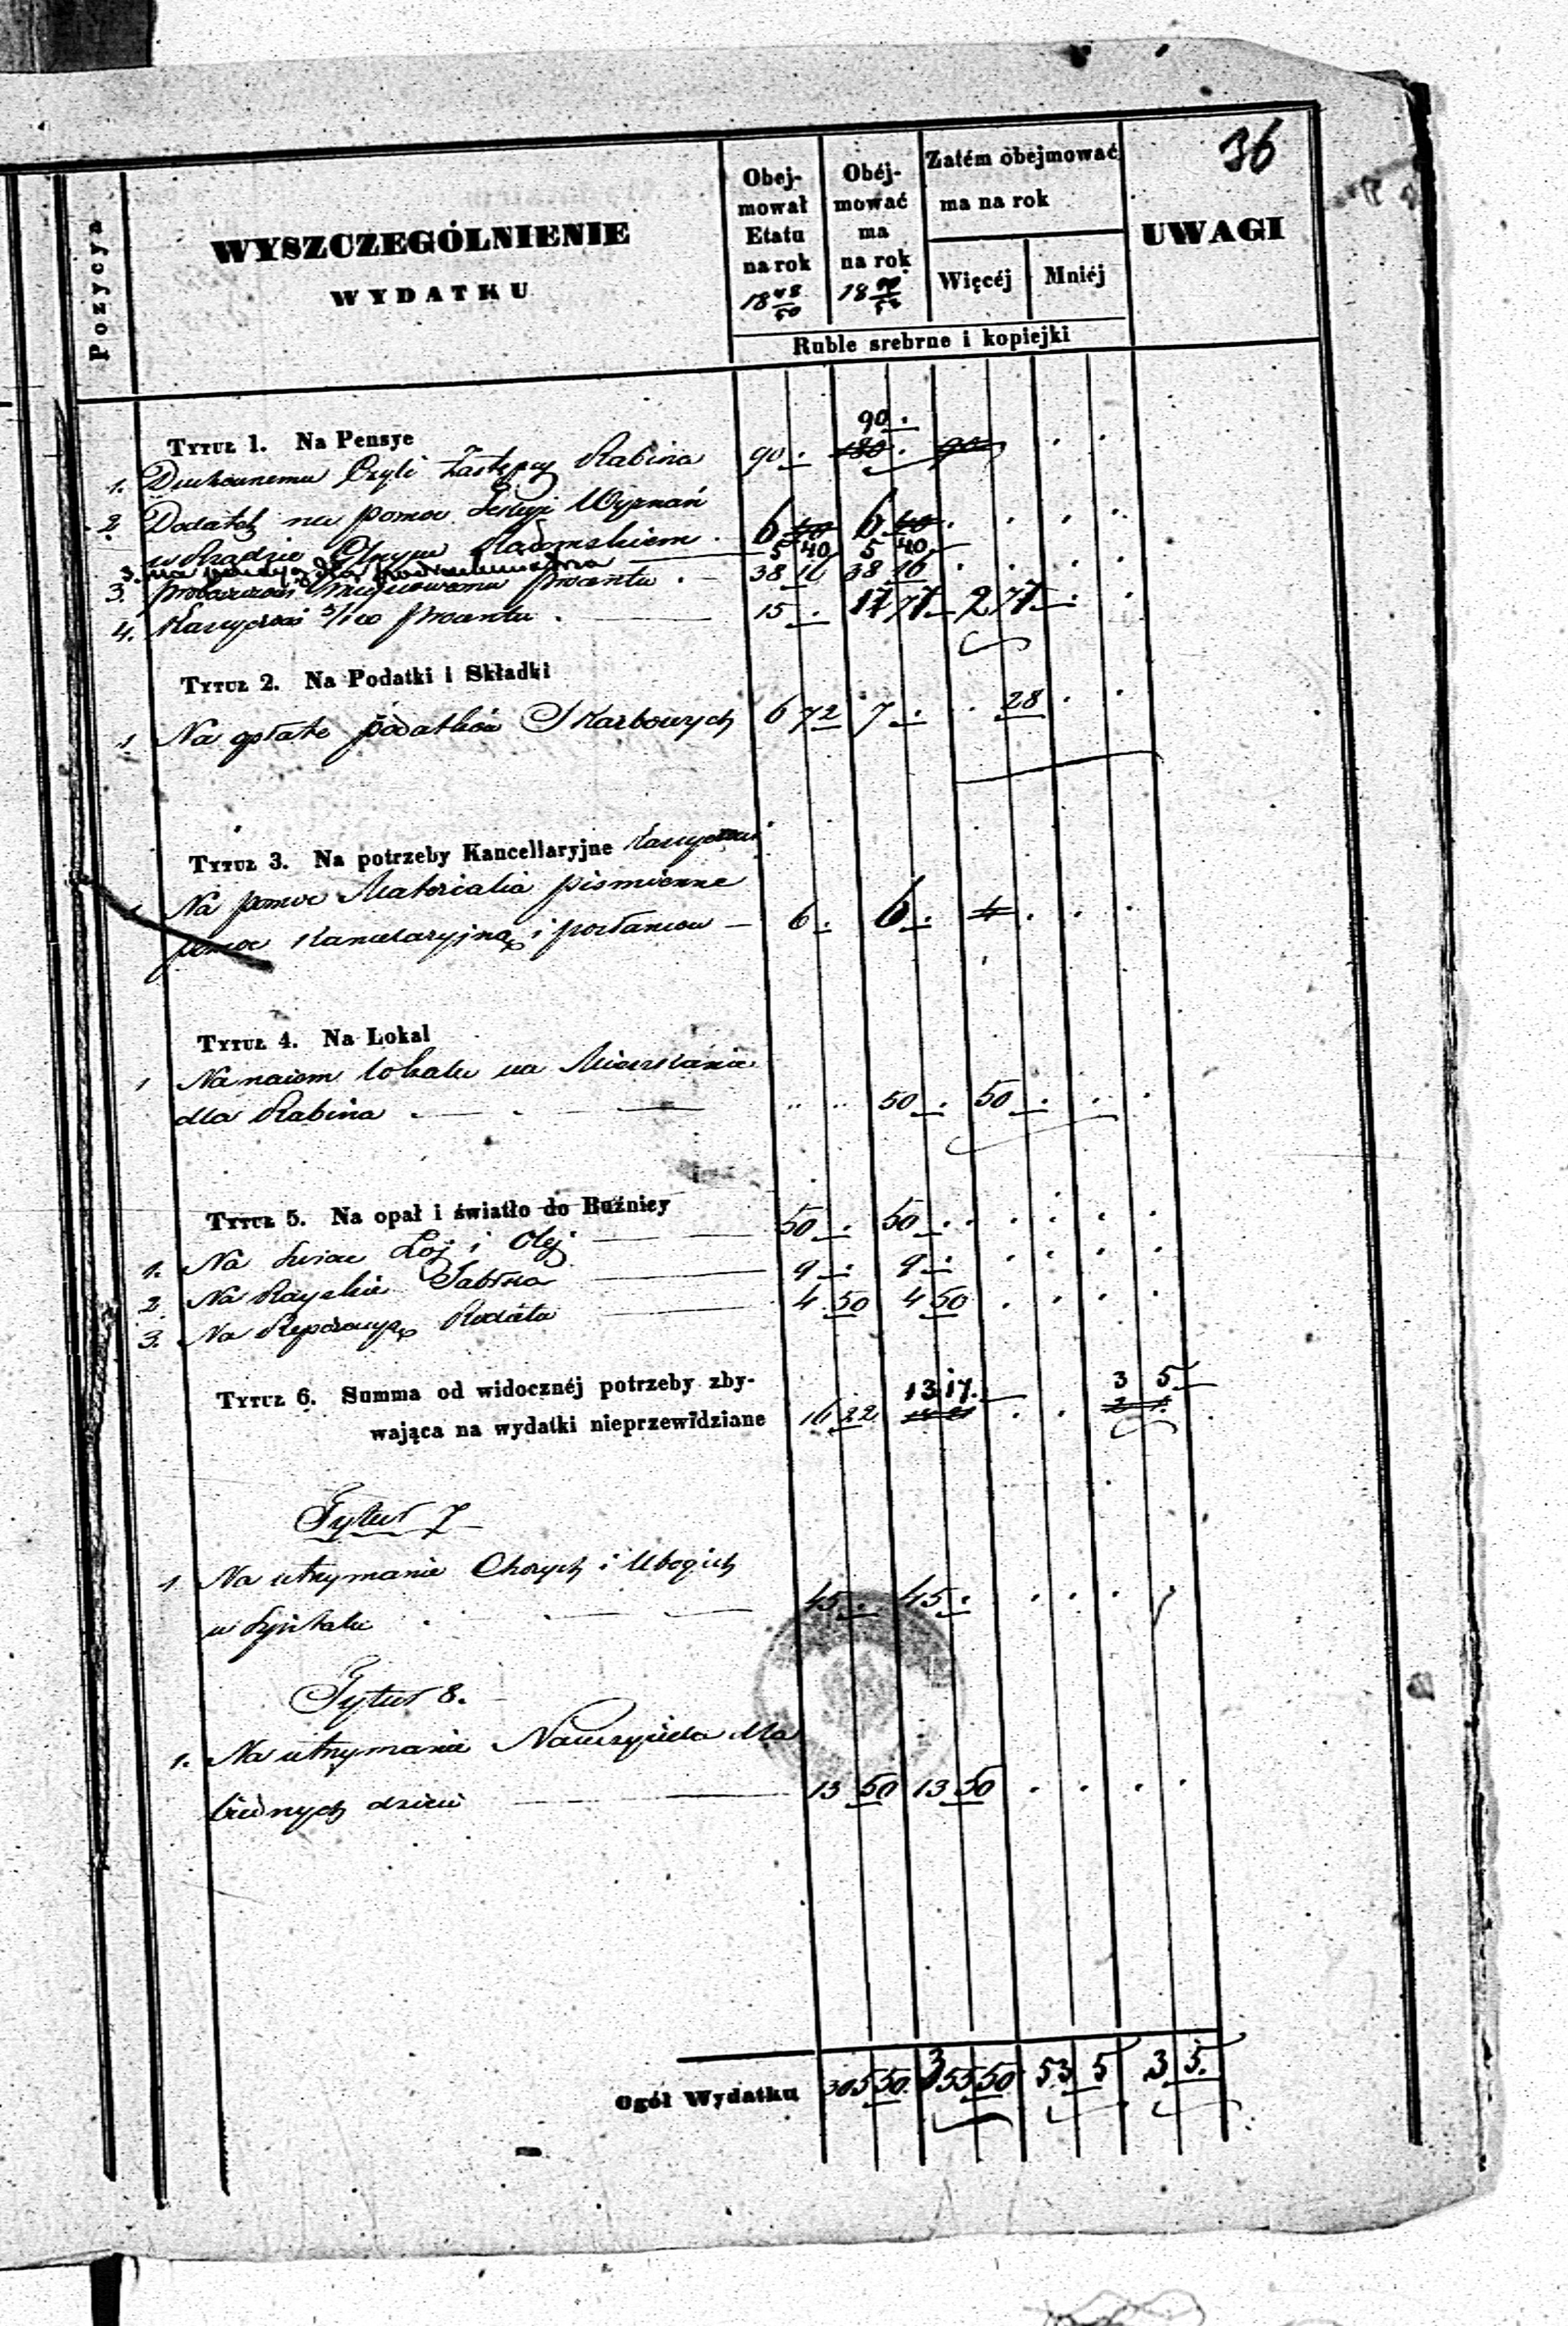 36
Pozycya
WYSZCZEGÓLNIENIE
WYDATKU
Obejmował Etatu na rok 18 48/50
Obéjmować ma na rok 18
Zatém obejmować ma na rok
Więcéj
Mniéj
UWAGI
Ruble srebrne i kopiejki
Tytuł 1. Na Pensye
90 .
1. Duchownemu Czyli Zastępcy Rabina 90 . 180 . 90
2 Dodatek na pomoc Sekcyi Wyznań
w Rządzie Radomskiem . 6 6
3. na 5 40 5 40
3. procentu . 38 16 38 16
4. Kassyerowi 5/100 procentu . 15 . 17 77 2 77
Tytuł 2. Na Podatki i Składki
1 Na opłatę podatków Skarbowych 6 72 7 . . 28
Tytuł 3. Na potrzeby Kancellaryjne
1 Na pomoc Materialia piśmienne
pomoc Kancelaryjną i posłańców 6 . 6 .
Tytuł 4. Na Lokal
1 Na naiem lokalu na Mieszkanie
dla Rabina . 50 . 50 .
Tytuł 5. Na opał i światło do Bużnicy
1. Na świece Łój i Olej 50 . 50 .
2 Na Rayskie Jabłka 9 . 9 .
3. Na Reperacyą Rodału 4 50 4 50
Tytuł 6. Summa od widocznéj potrzeby zby-
13 17. 3 5.
wająca na wydatki nieprzewidziane 16 22
Tytuł 7
1 Na utrzymanie Chorych i Ubogich
w Szpitalu 45 . 45 .
Tytuł 8.
1. Na utrzymanie Nauczyciela dla
biednych dzieci 13 50 13 50
Ogół Wydatku 305 50. 355 50 53 5 3 5.